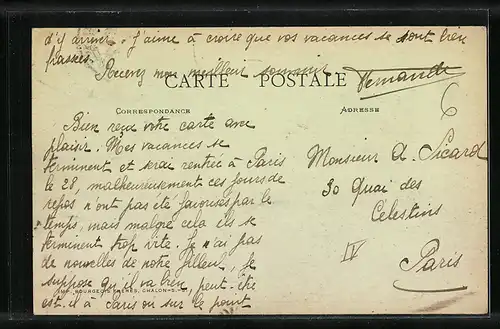 d'y arriver. J'aime à croire que vos vacances se sont bien
passées.
Recevez mon meilleur souvenir
Fernande
CARTE POSTALE
CORRESPONDANCE
ADRESSE
6
Bien reçu votre carte avec
plaisir. Mes vacances se
terminent et serai rentrée à Paris
le 28, malheureusement ces jours de
repos n'ont pas été favorisés par le
temps, mais malgré cela ils se
terminent trop vite. Je n'ai pas
de nouvelles de notre filleul, je
suppose qu'il va bien, peut-être
est-il à Paris ou sur le point
Monsieur A. Sicard
30 Quai des
Celestins
IV
Paris
IMP. BOURGEOIS FRÈRES, CHALON-S-S